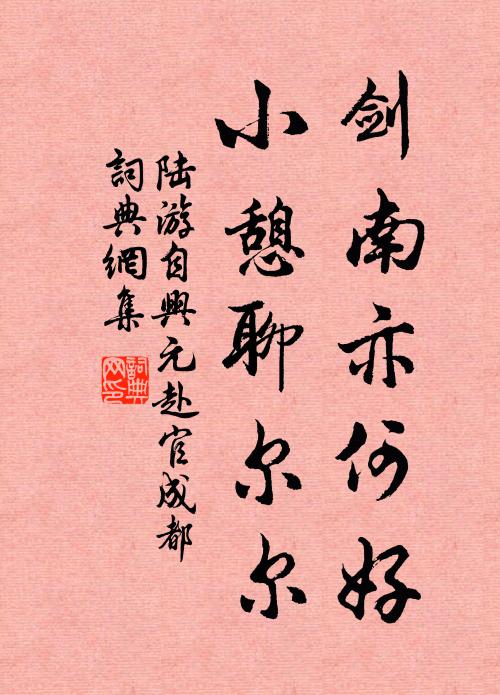 剑南亦何好
小憩聊尔尔
陆游自興元赴官成都
詞典網集
詞典
网印